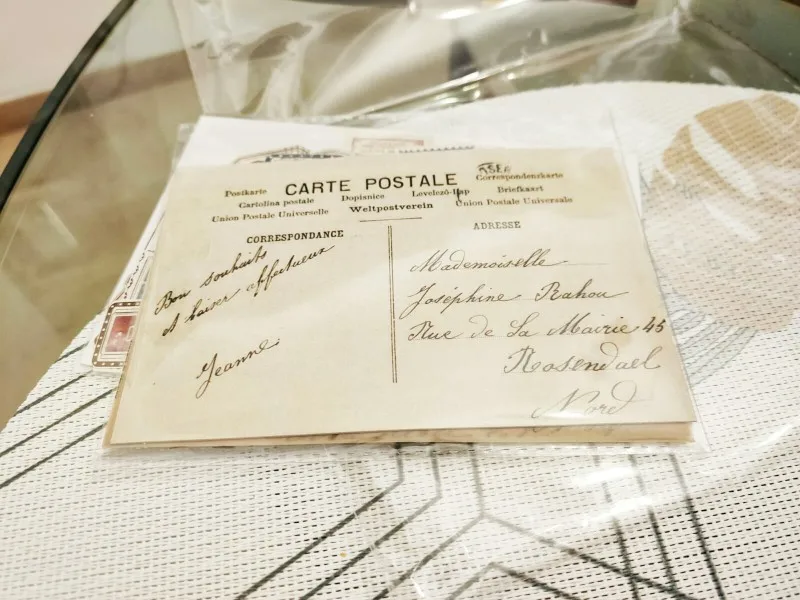 Postkarte CARTE POSTALE Correspondenzkarte
Cartolina postale Dopisnice Levelező-Lap Briefkaart
Union Postale Universelle Weltpostverein Union Postale Universale
CORRESPONDANCE
Bon souhaits
et baiser affectueux
Jeanne.
ADRESSE
Mademoiselle
Joséphine Rahou
Rue de La Mairie 45
Rosendael
Nord